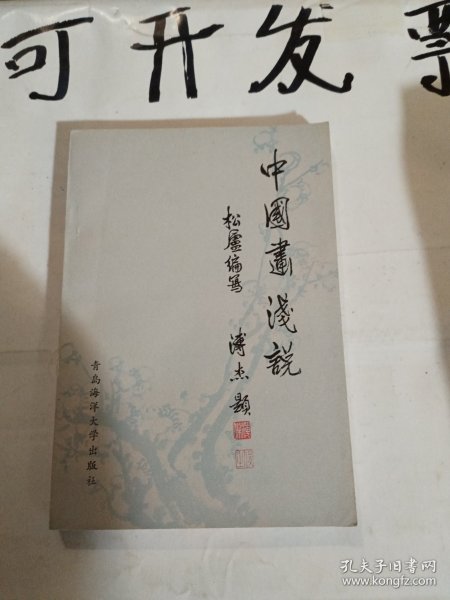 可开发票
中國畫淺說
松廬编写
溥杰題
青岛海洋大学出版社
孔夫子旧书网
www.kongfz.com